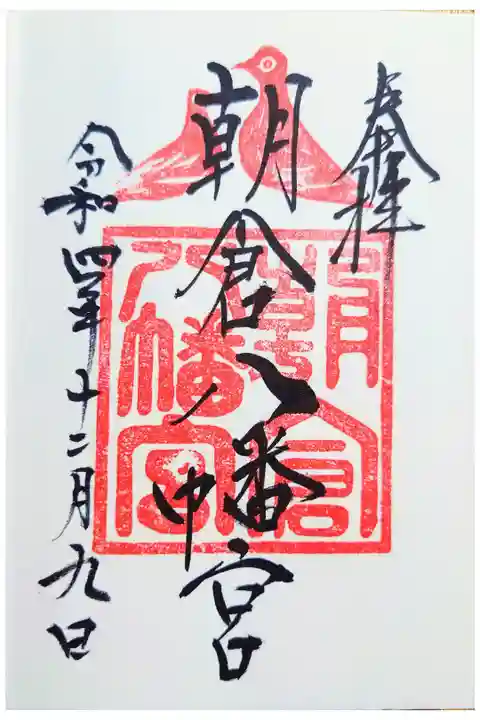 奉拝
朝倉八幡宮
朝倉
八幡宮
令和四年十二月九日